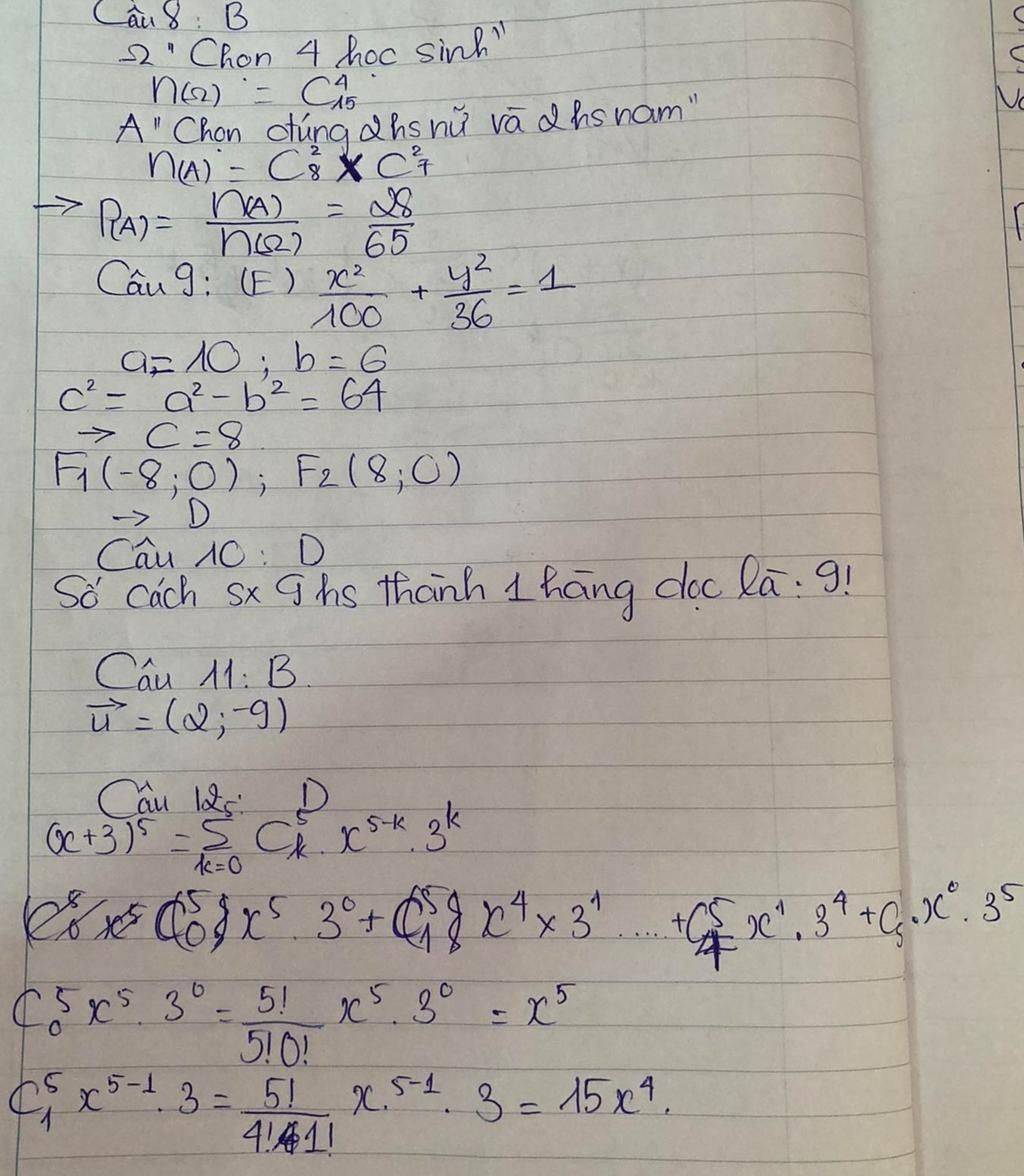 Câu 8 : B
Ω " Chọn 4 học sinh"
n(Ω) = C⁴₁₅
A " Chọn đúng 2 hs nữ và 2 hs nam"
n(A) = C²₈ x C²₇
→ P(A) = n(A)/n(Ω) = 28/65
Câu 9 : (E) x²/100 + y²/36 = 1
a = 10 ; b = 6
c² = a² - b² = 64
→ C = 8
F₁(-8;0) ; F₂(8;0)
→ D
Câu 10 : D
Số cách sx 9 hs thành 1 hàng dọc là : 9!
Câu 11 : B.
u⃗ = (2;-9)
Câu 12 : D
(x+3)⁵ = ⁵Σₖ₌₀ C⁵ₖ . x⁵⁻ᵏ . 3ᵏ
C⁵₀ x⁵ . 3⁰ + C⁵₁ x⁴ x 3¹ ..... + C⁵₄ x¹ . 3⁴ + C₅ . x⁰ . 3⁵
C⁵₀ x⁵ . 3⁰ = 5!/5!0! x⁵ . 3⁰ = x⁵
C⁵₁ x⁵⁻¹ . 3 = 5!/4!1! x.⁵⁻¹ . 3 = 15x⁴.